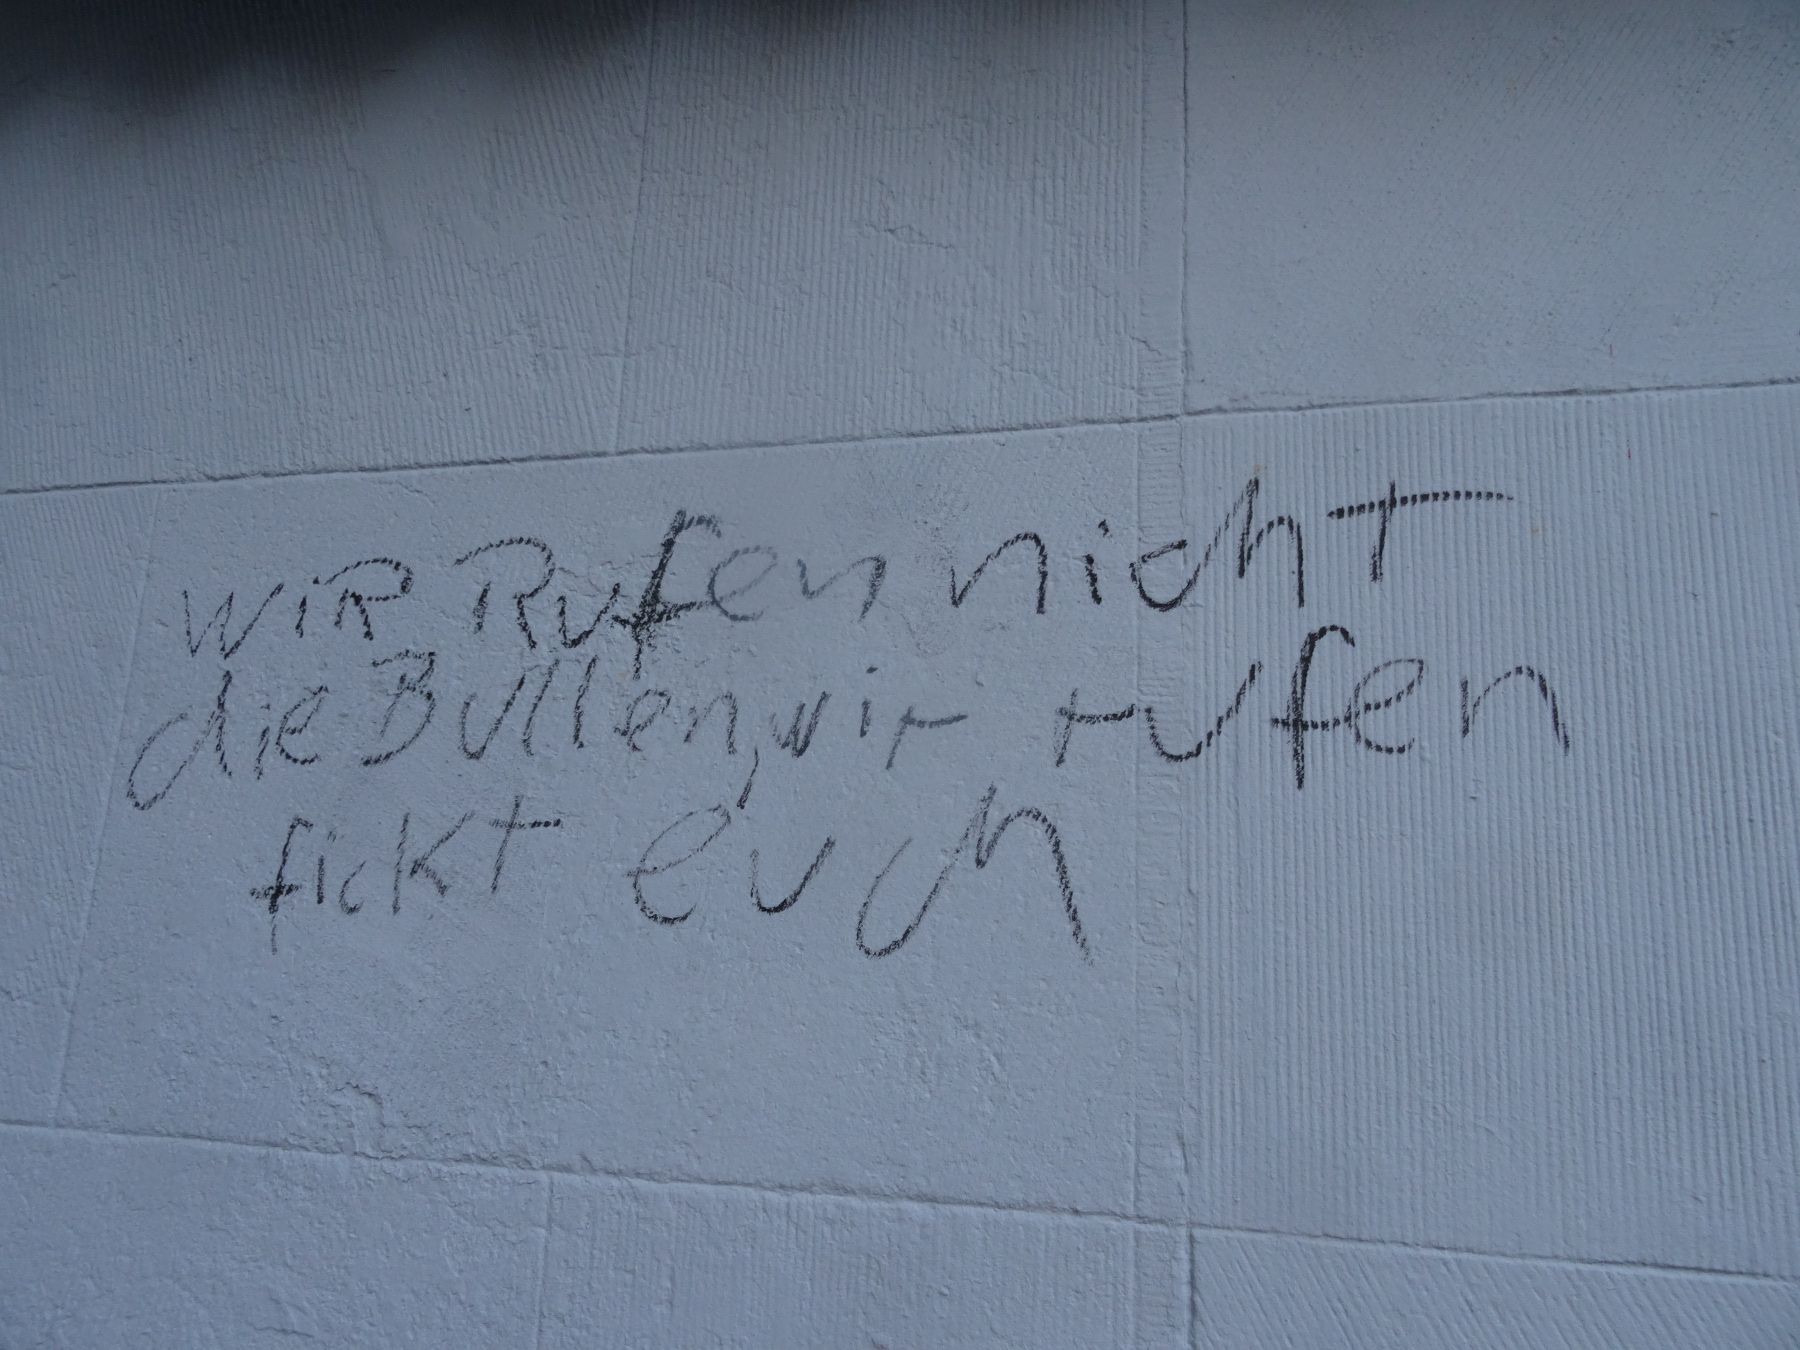 wiR Rufen nicht
die Bullen, wir rufen
fickt euch